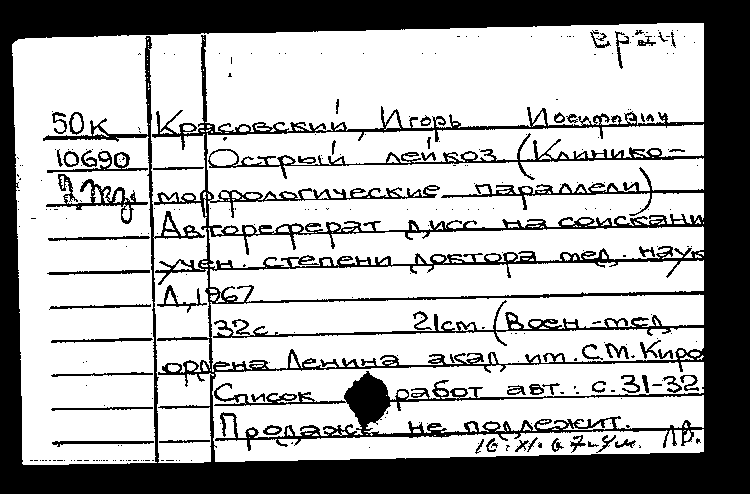 врач
50к Красовский, Игорь Иосифович
10690 Острый лейкоз (Клинико-
морфологические параллели)
Автореферат дисс. на соискани
учен. степени доктора мед. наук
Л., 1967
32с. 21см. (Воен.-мед.
ордена Ленина акад. им. С.М. Киро
Список работ авт.: с. 31-32.
Продаже не подлежит.
ЛВ.